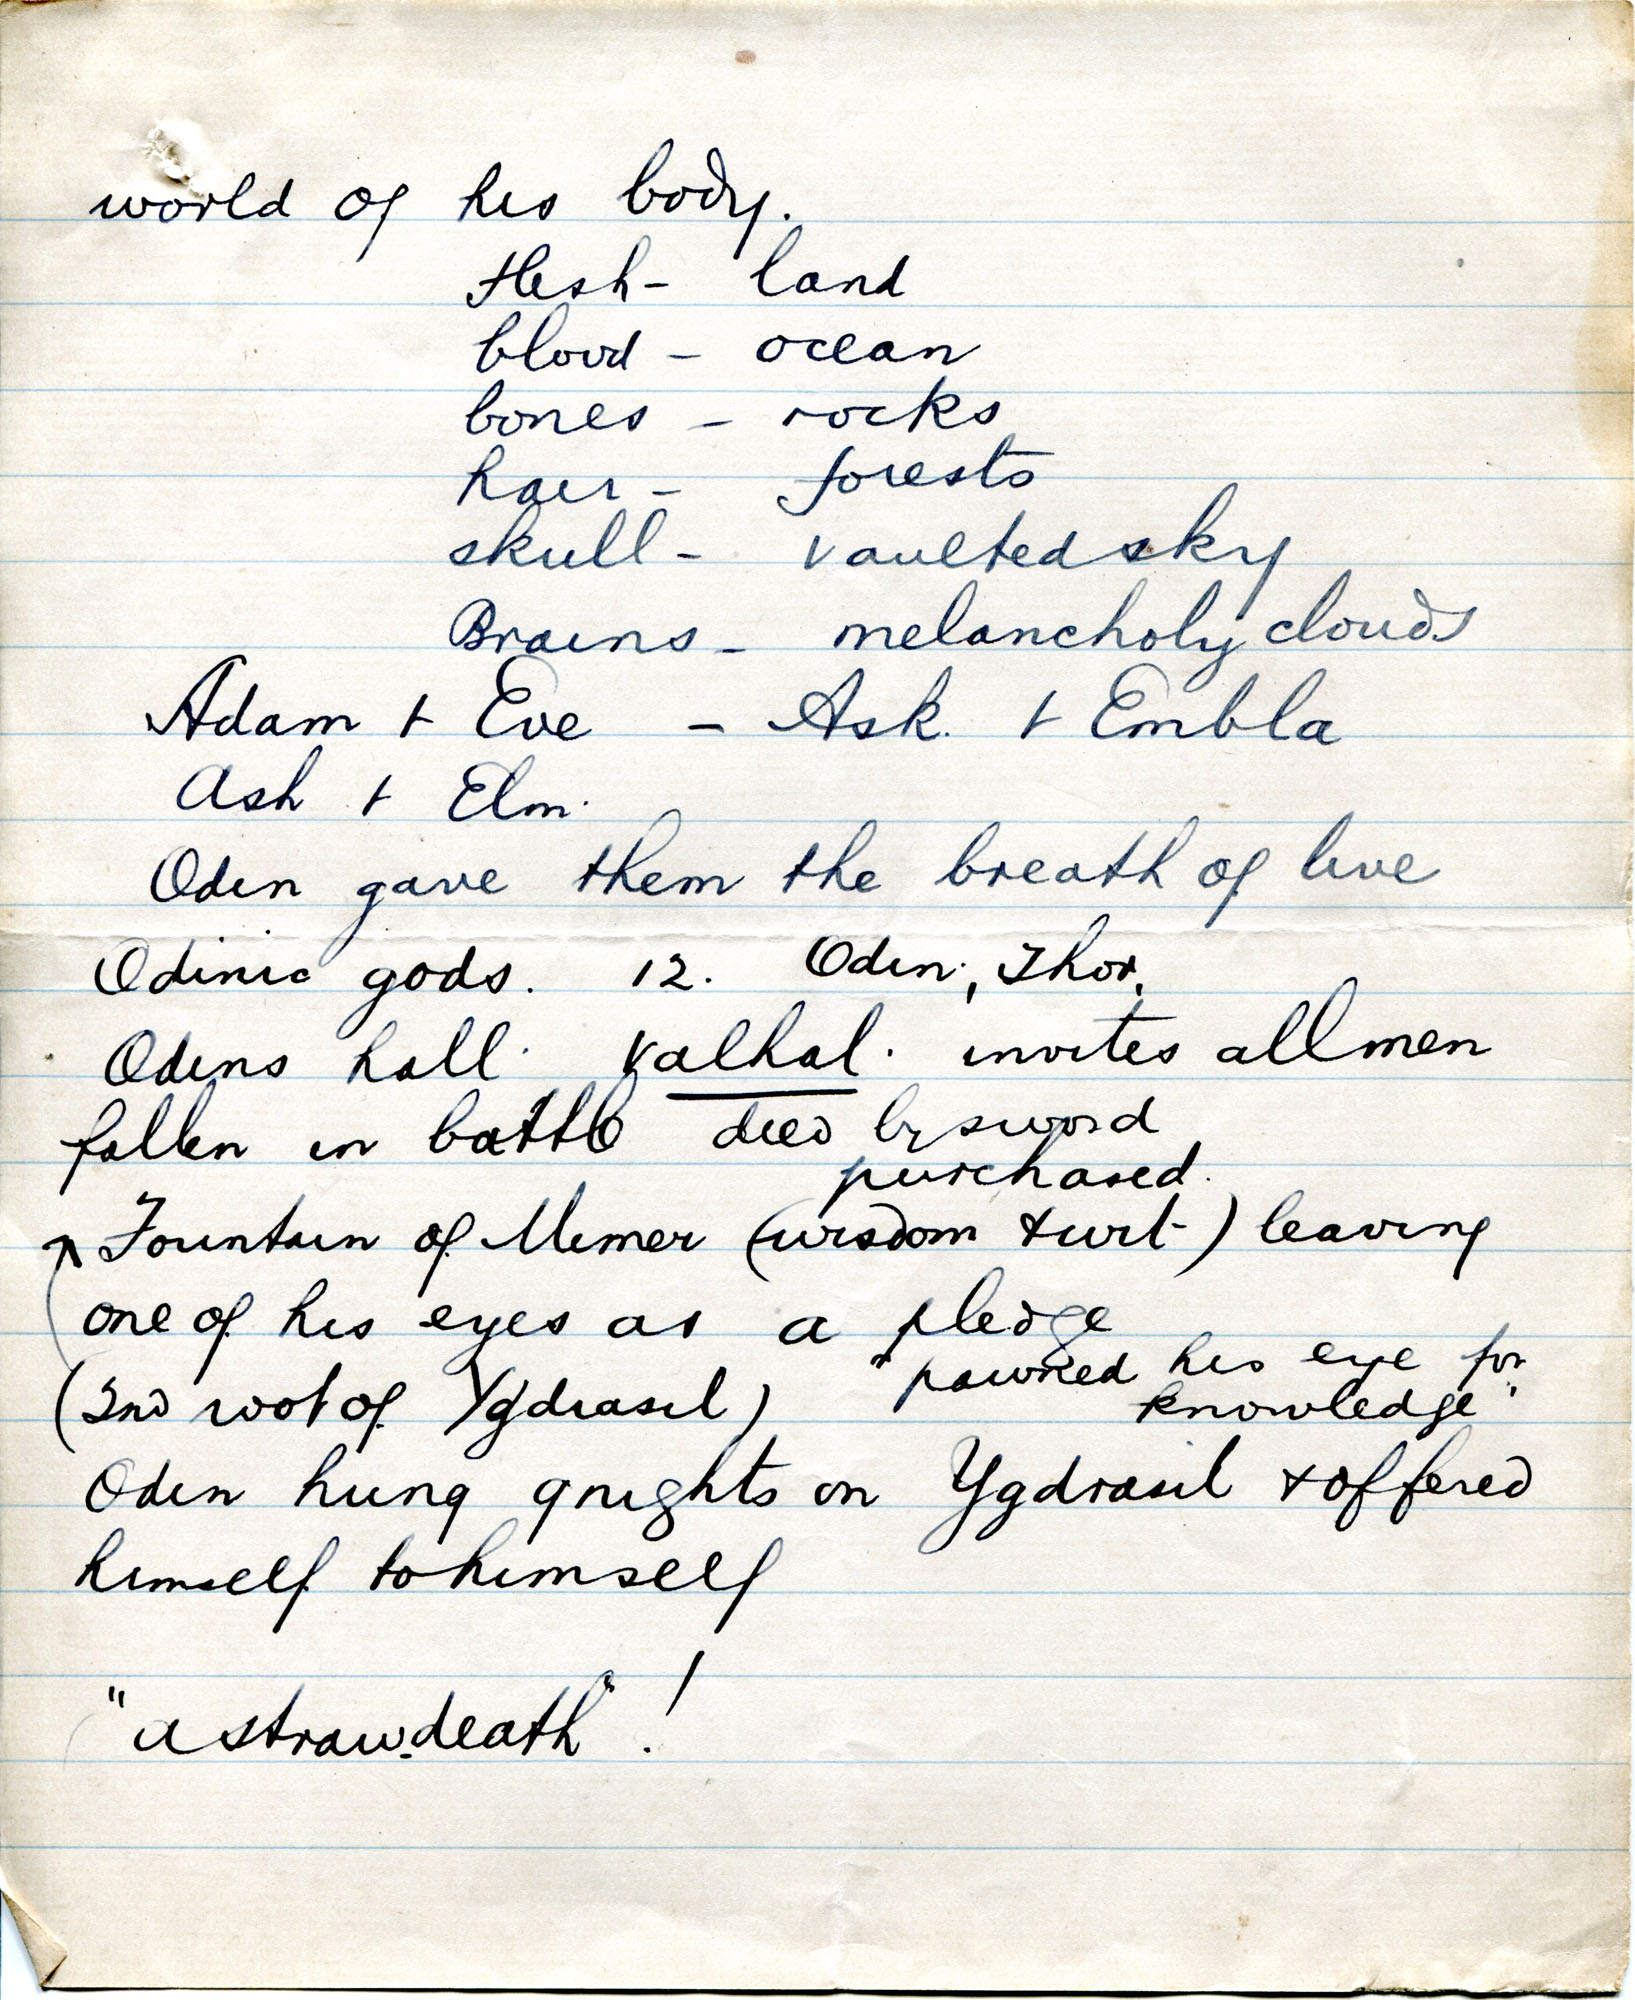 world of his body.
flesh - land
blood - ocean
bones - rocks
hair - forests
skull - vaulted sky
Brains - melancholy clouds
Adam + Eve - Ask. + Embla
Ash + Elm.
Odin gave them the breath of live
Odinic gods. 12. Odin, Thor,
Odins hall. Valhal. invites all men
fallen in battle died by sword
purchased.
Fountain of Mimer (wisdom + wit) leaving
one of his eyes as a pledge
"pawned his eye for
(2nd root of Ygdrasil) knowledge"
Odin hung 9 nights on Ygdrasil + offered
himself to himself
"a straw-death"!